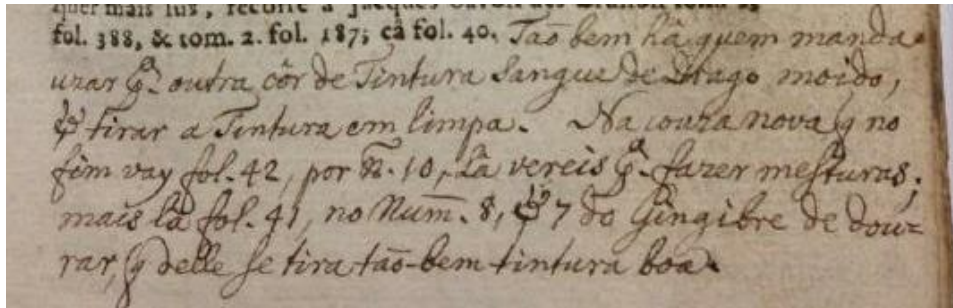 quer mais luz, recorre a Jacques
fol. 388, & tom. 2. fol. 187; cá fol. 40. Tão bem há quem manda
uzar pª. outra côr de Tintura Sangue de Drago moido,
& tirar a Tintura em limpa. Na couza nova q no
fim vay fol. 42, por N. 10, Lâ vereis pª. fazer mesturas;
mais lâ fol. 41, no Num. 8, & 7 do Gingibre de dou=
rar, q delle se tira tão-bem tintura boa.